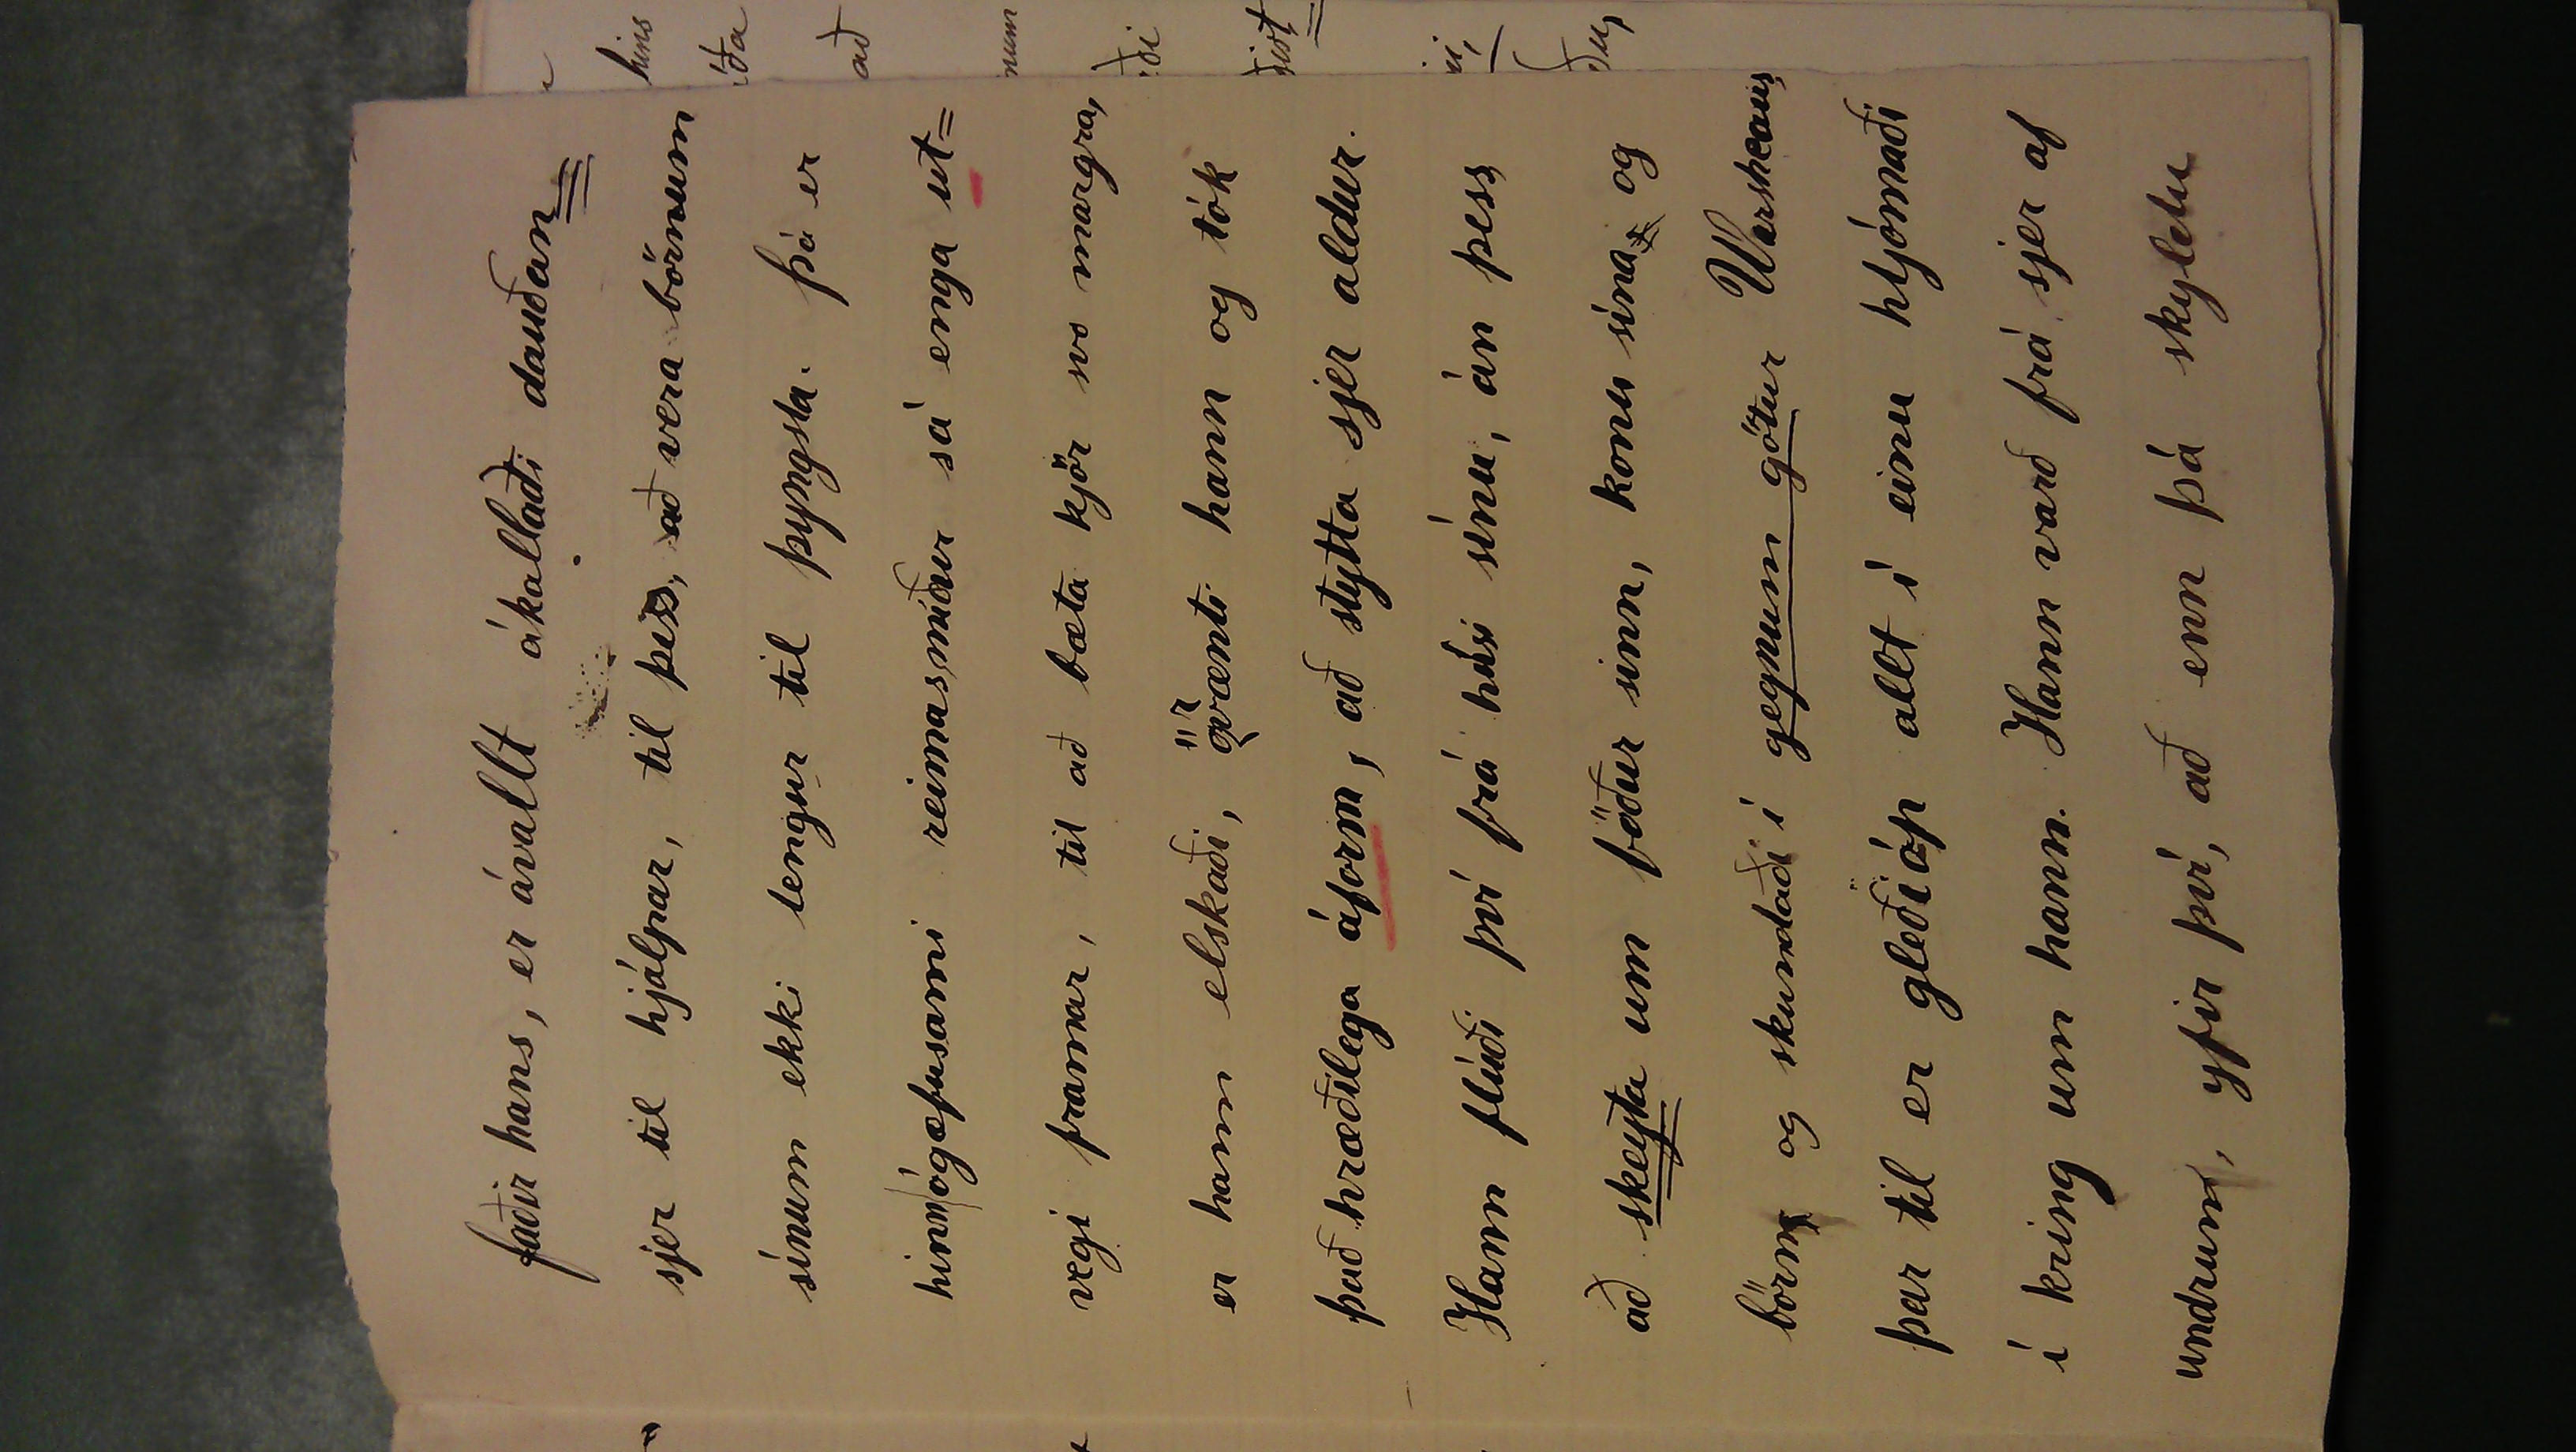 faðir hans, er ávallt ákallaði dauðan
sjer til hjálpar, til þess, að vera börnum
sínum ekki lengur til þyngsla. Þá er
hinn ógæfusami reimasmiður sá enga út=
vegi framar, til að bæta kjör svo margra,
er hann elskaði, örvænti hann og tók
það hræðilega áform, að stytta sjer aldur.
Hann flúði því frá húsi sínu, án þess
að skeyta um föður sinn, konu sína og
börn og skundaði í gegnum götur Warsheau,
þar til er gleðióp allt í einu hljómaði
í kring um hann. Hann varð frá sjer af
undrum, yfir því, að enn þá skyldu
hins
að